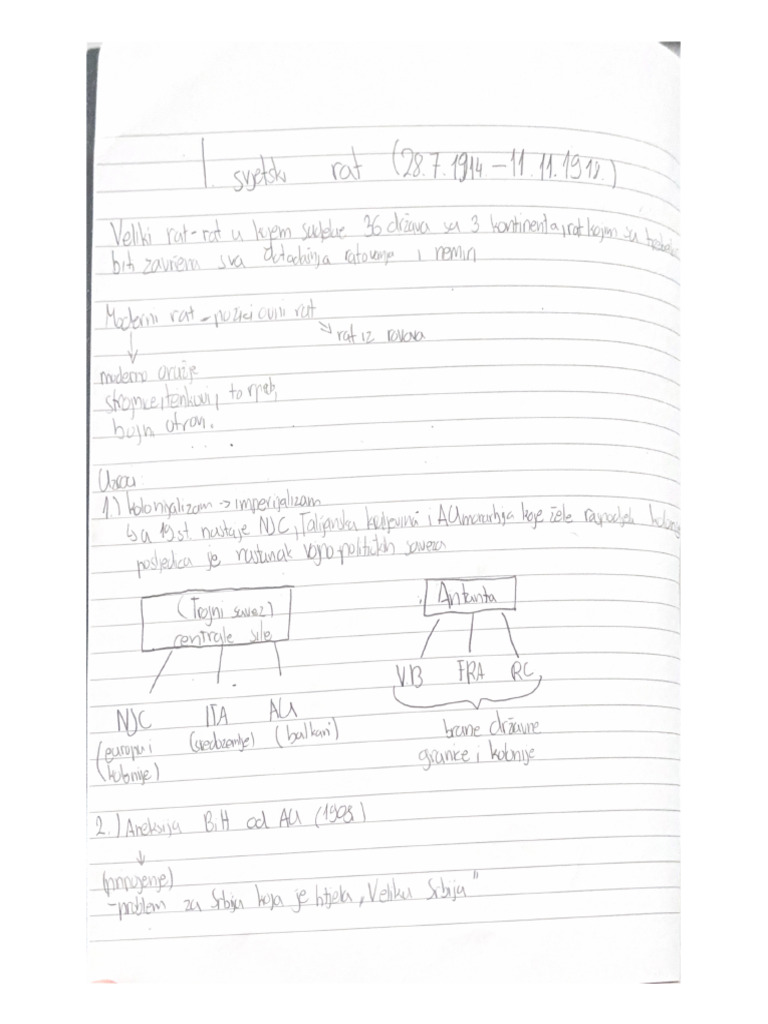 I. svjetski rat (28.7.1914. – 11.11.1918.)
Veliki rat - rat u kojem sudjeluje 36 država sa 3 kontinenta, rat kojim su
biti završena sva dotadašnja ratovanja i nemiri
Moderni rat – pozicijski rat
↳ rat iz rovova
moderno oružje
strojnice, tenkovi, torped,
bojni otrovi.
Uzroci:
1.) kolonijalizam → imperijalizam
↳ u 19 st. nastaje NJC, Talijanska kraljevina i AU monarhija koje žele raspodjelu
posljedica je nastanak vojno-političkih saveza
(Trojni savez) Antanta
centrale sile
VB FRA RC
NJC ITA AU
(europu i (sredozemlje) (balkan) brane državne
kolonije) granice i kolonije
2.) Aneksija BiH od AU (1908)
↓
(pripojenje)
- problem za Srbiju koja je htjela „Veliku Srbiju"